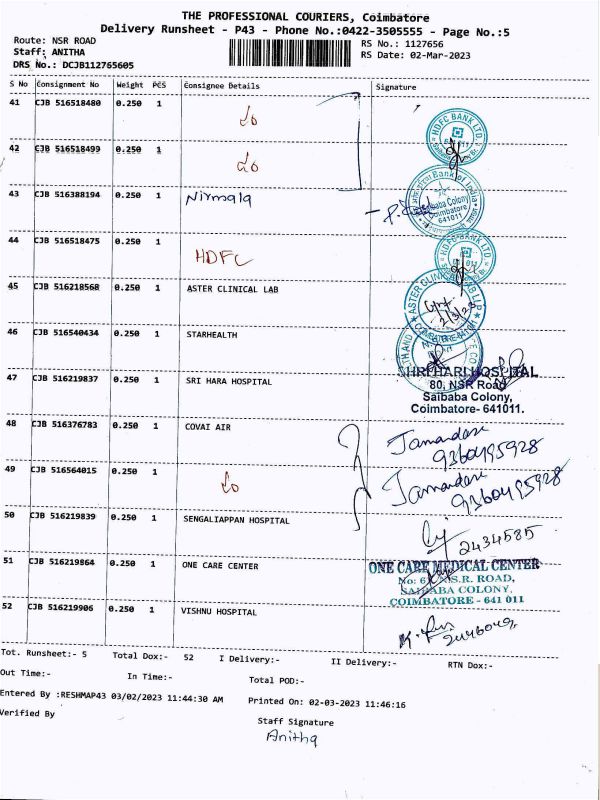 THE PROFESSIONAL COURIERS, Coimbatore
Delivery Runsheet - P43 - Phone No.:0422-3505555 - Page No.:5
Route: NSR ROAD
RS No.: 1127656
Staff: ANITHA
RS Date: 02-Mar-2023
DRS No.: DCJB112765605
S No Consignment No Weight PCS Consignee Details Signature
41 CJB 516518480 0.250 1
HDFC BANK LTD.
42 CJB 516518499 0.250 1
Bank of India
43 CJB 516388194 0.250 1 Nirmala
Saibaba Colony
Coimbatore
641011
44 CJB 516518475 0.250 1 HDFC
HDFC BANK LTD.
45 CJB 516218568 0.250 1 ASTER CLINICAL LAB
ASTER CLINICAL LAB LLP
2/3/23
46 CJB 516540434 0.250 1 STARHEALTH
47 CJB 516219837 0.250 1 SRI HARA HOSPITAL
SHRI HARI HOSPITAL
80, NSR Road
Saibaba Colony,
Coimbatore- 641011.
48 CJB 516376783 0.250 1 COVAI AIR
9360495928
49 CJB 516564015 0.250 1
9360495928
50 CJB 516219839 0.250 1 SENGALIAPPAN HOSPITAL
2434585
51 CJB 516219864 0.250 1 ONE CARE CENTER
ONE CARE MEDICAL CENTER
N.S.R. ROAD,
SAIBABA COLONY.
COIMBATORE - 641 011
52 CJB 516219906 0.250 1 VISHNU HOSPITAL
Tot. Runsheet:- 5 Total Dox:- 52 I Delivery:- II Delivery:- RTN Dox:-
Out Time:- In Time:- Total POD:-
Entered By :RESHMAP43 03/02/2023 11:44:30 AM Printed On: 02-03-2023 11:46:16
Verified By
Staff Signature
Anitha